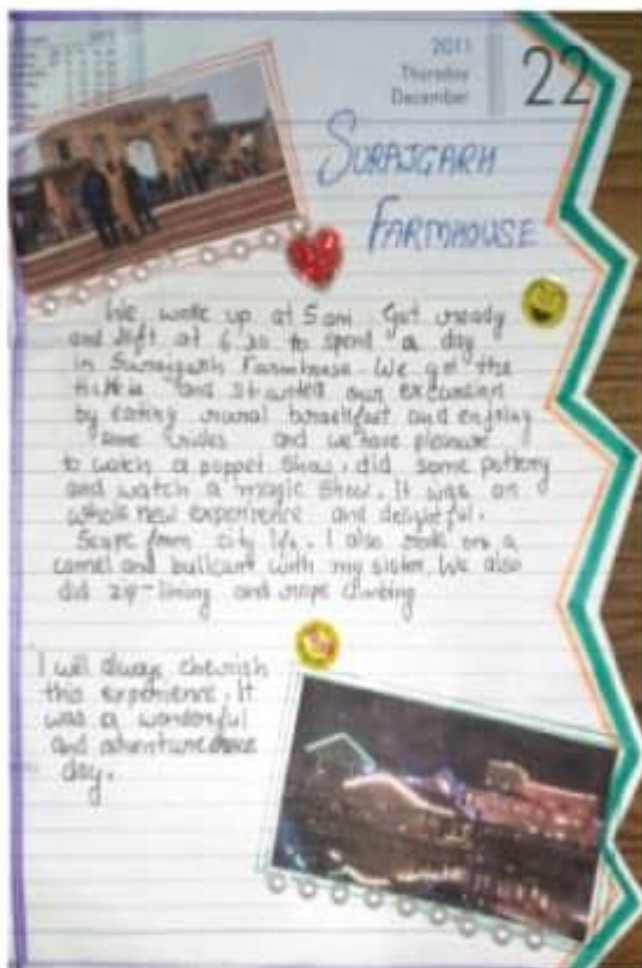 2011
Thursday
December
22
SURAJGARH
FARMHOUSE
We woke up at 5 am Got ready
and left at 6:30 to spend a day
in Surajgarh Farmhouse. We got the
and started our excursion
by eating rural breakfast and enjoing
some rides and we have pleasure
to watch a puppet show. did some pottery
and watch a magic show. It was an
whole new experience and delightful.
Scape from city life. I also rode on a
camel and bullcart with my sister. We also
did zip-lining and rope climbing
I will always cherish
this experience. It
was a wonderful
and
day.